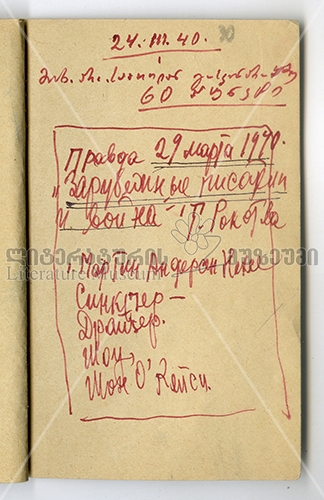 24. III. 40.
60 წუნკალი
Правда 29 марта 1940.
"Зарубежные писатели
и война" П. Рокотва
ლიტერატურის მუზეუმი
Literature Museum
Мартин Андерсен Нексе
Синклер –
Драйзер.
Шоу,
Шон О'Кейси.